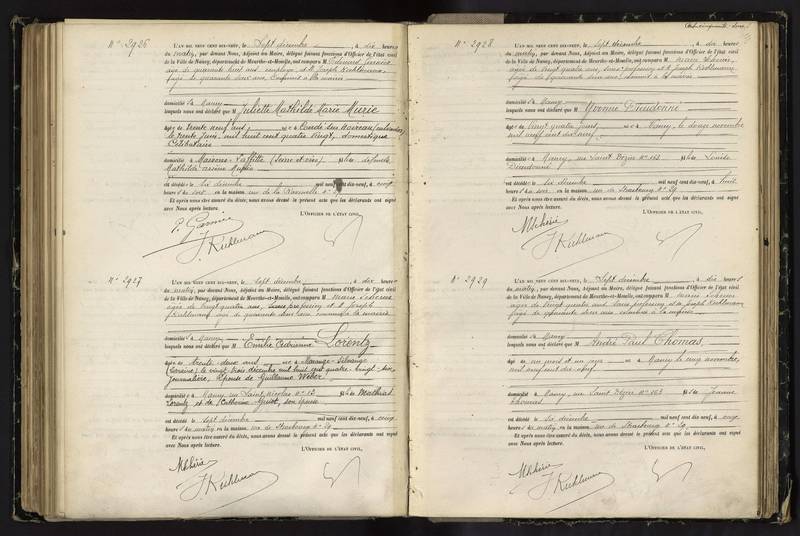 Nº 2926
L'AN MIL NEUF CENT DIX-NEUF, le Sept décembre, à dix heures
du matin, par devant Nous, Adjoint au Maire, délégué faisant fonctions d'Officier de l'état civil
de la Ville de Nancy, département de Meurthe-et-Moselle, ont comparu M
âgé de quarante huit ans, employé, et M Joseph Kuhlmann
âgé de quarante deux ans,
domicilié à Nancy
lesquels nous ont déclaré que M Juliette Mathilde Marie Muric
âgée de trente neuf ans, née à Candé
le trente juin, mil huit cent quatre vingt, domestique
Célibataire
domiciliée à Maisons-Laffitte (Seine et Oise) fille de défunte
Mathilde
est décédée le six décembre mil neuf cent dix-neuf, à onze
heures du soir, en la maison, rue de la Ravinelle nº
Et après nous être assuré du décès, nous avons dressé le présent acte que les déclarants ont signé
avec Nous après lecture.
L'OFFICIER DE L'ÉTAT CIVIL,
J. Kuhlmann
Nº 2927
L'AN MIL NEUF CENT DIX-NEUF, le sept décembre, à dix heures
du matin, par devant Nous, Adjoint au Maire, délégué faisant fonctions d'Officier de l'état civil
de la Ville de Nancy, département de Meurthe-et-Moselle, ont comparu M Marie
âgée de vingt quatre ans, sans profession et M Joseph
Kuhlmann âgé de quarante deux ans, employé à la mairie
domiciliés à Nancy
lesquels nous ont déclaré que M Emilie Adrienne Lorentz
âgée de trente-deux ans née à Marange-Silvange
(Lorraine) le vingt trois décembre mil huit cent quatre-vingt-six,
journalière, épouse de Guillaume Weber
domiciliée à Nancy, rue Saint Nicolas nº 53 fille de Mathias
Lorentz et de Catherine son épouse
est décédée le sept décembre mil neuf cent dix-neuf, à onze
heures du matin, en la maison, rue de Strasbourg nº 29
Et après nous être assuré du décès, nous avons dressé le présent acte que les déclarants ont signé
avec Nous après lecture.
L'OFFICIER DE L'ÉTAT CIVIL,
J. Kuhlmann
Nº 2928
L'AN MIL NEUF CENT DIX-NEUF, le Sept décembre, à dix heures
du matin, par devant Nous, Adjoint au Maire, délégué faisant fonctions d'Officier de l'état civil
de la Ville de Nancy, département de Meurthe-et-Moselle, ont comparu M Marie
âgée de vingt quatre ans, sans profession et M Joseph Kuhlmann
âgé de quarante deux ans, employé à la mairie
domiciliés à Nancy
lesquels nous ont déclaré que M Yvonne Dieudonné
âgée de vingt quatre jours, née à Nancy, le douze novembre
mil neuf cent dix neuf,
domiciliée à Nancy, rue Saint Dizier nº 163 fille de Louise
Dieudonné
est décédée le six décembre mil neuf cent dix-neuf, à huit
heures du soir, en la maison, rue de Strasbourg nº 29
Et après nous être assuré du décès, nous avons dressé le présent acte que les déclarants ont signé
avec Nous après lecture.
L'OFFICIER DE L'ÉTAT CIVIL,
J. Kuhlmann
Nº 2929
L'AN MIL NEUF CENT DIX-NEUF, le Sept décembre, à dix heures
du matin, par devant Nous, Adjoint au Maire, délégué faisant fonctions d'Officier de l'état civil
de la Ville de Nancy, département de Meurthe-et-Moselle, ont comparu M Marie
âgée de vingt quatre ans, sans profession et M Joseph Kuhlmann
âgé de quarante deux ans, employé à la mairie
domiciliés à Nancy
lesquels nous ont déclaré que M André Paul Thomas,
âgé de un mois et un jour né à Nancy le cinq novembre,
mil neuf cent dix neuf
domicilié à Nancy, rue Saint Dizier nº 163 fils de Jeanne
Thomas
est décédé le six décembre mil neuf cent dix-neuf, à onze
heures du matin, en la maison, rue de Strasbourg nº 29
Et après nous être assuré du décès, nous avons dressé le présent acte que les déclarants ont signé
avec Nous après lecture.
L'OFFICIER DE L'ÉTAT CIVIL,
J. Kuhlmann